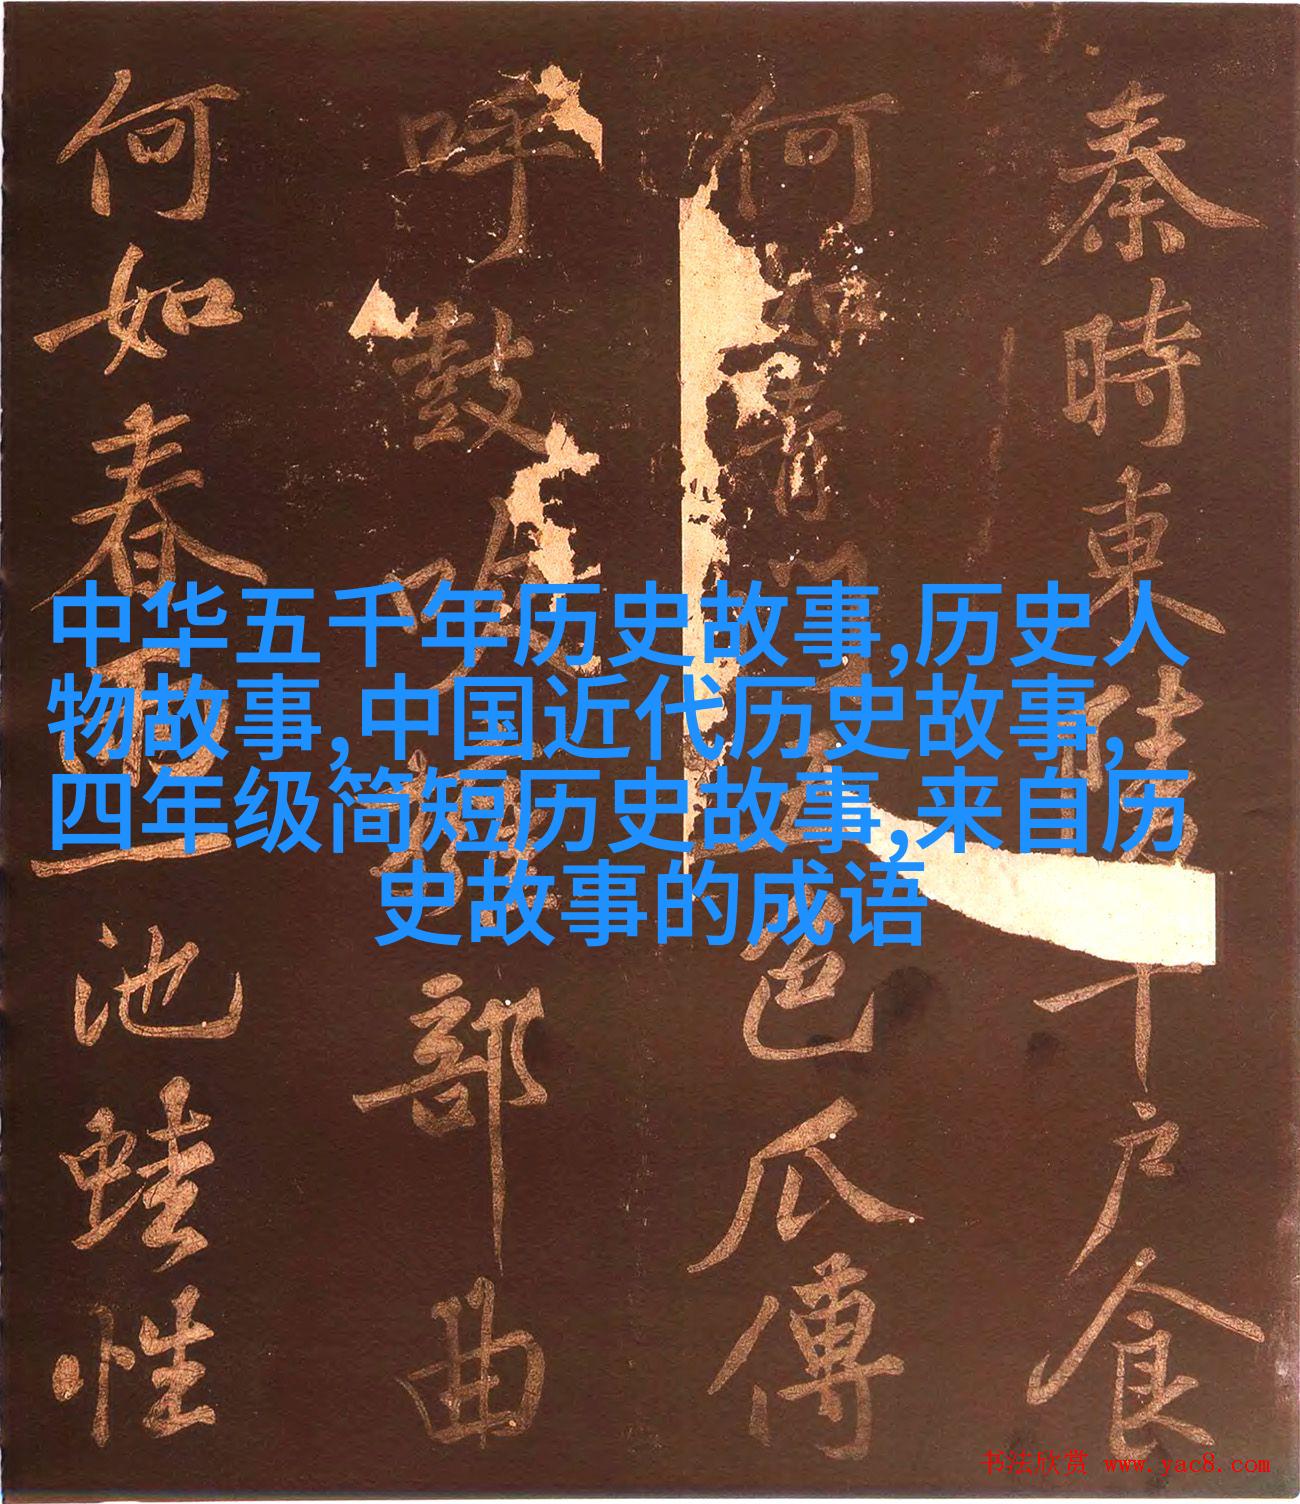 秦時東陵千戶食
何如青門五色瓜傳
呼鼓吹部曲
何如春一池蛙性
中华五千年历史故事,历史人
物故事,中国近代历史故事,
四年级简短历史故事,来自历
史故事的成语
书法欣赏 www.yac8.com